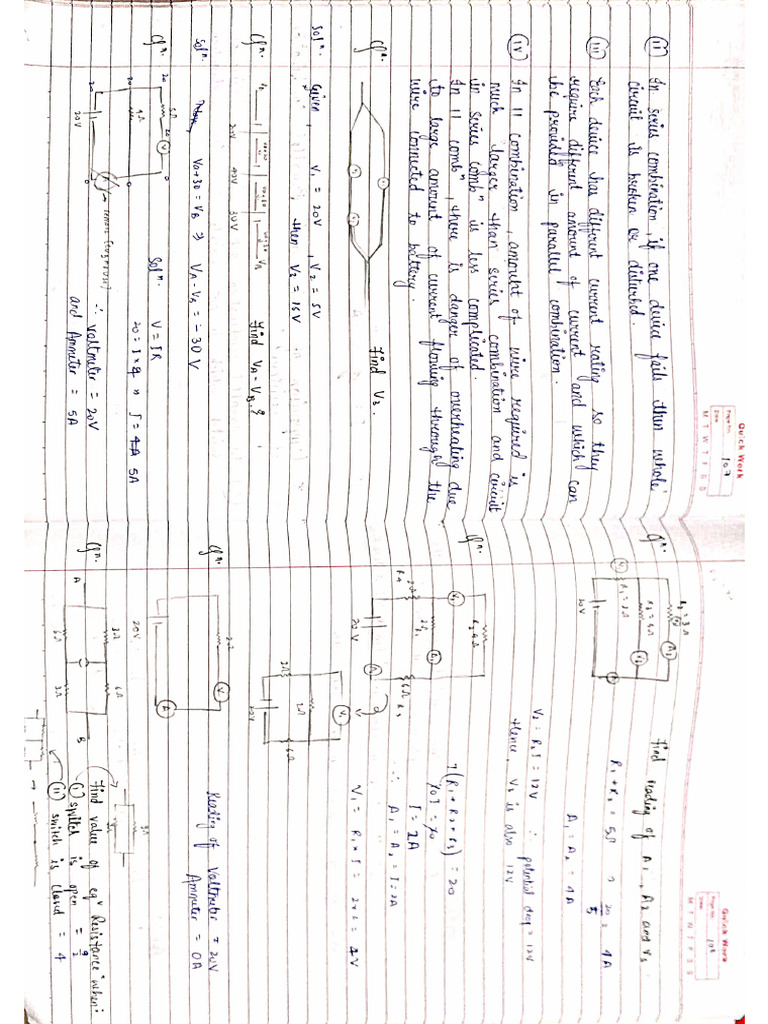 Quick Work
Page No. 107
Date
M T W T F S S
(ii) In series combination, if one device fails then whole
circuit is broken or disturbed.
(iii) Each device has different current rating so they
require different amount of current and which can
be provided in parallel combination.
(iv) In 11 combination, amount of wire required is
much larger than series combination and circuit
in series combn is less complicated.
In 11 combn, there is danger of overheating due
to large amount of current flowing through the
wire connected to battery.
Qn.
find V3.
Soln.
Given, V1 = 20V, V2 = 5V
then V2 = 15V
Qn.
20V
30V
VA
find VA - VB?
Soln.
V0+30 = VB ⇒ VA - VB = - 30V
Qn.
20
5Ω
20
V
20
4Ω
20
0
20V
Soln. V = IR
20 = I × 4 ≈ I = 4A 5A
∴ Valtmeter = 20V
and Ammeter = 5A
Quick Work
Page No. 108
Date
M T W T F S S
Qn.
A2
R1 = 2Ω
20V
find reading of A1, A2 and V3
R1 + R2 = 5Ω
20/5 = 4A
A1 = A2 = 4A
V2 = R2 I = 12V ∴ potential drop = 12V
Hence, V3 is also 12V
Qn.
V1
R2 4Ω
2Ω
A1
6Ω R3
20V
I(R1 + R2 + R3) = 20
I = 2A
∴ A1 = A2 = I = 2A
V1 = R1 × I = 2 × 2 = 4V
2Ω
2Ω
6Ω
V1
Qn.
2Ω
V
A
20V
Reading of Valtmeter = 20V
Ammeter = 0A
Qn.
A
3Ω
6Ω
6Ω
3Ω
B
find value of eqv Resistance when:
(i) switch is open = 9/2
(ii) switch is closed = 4